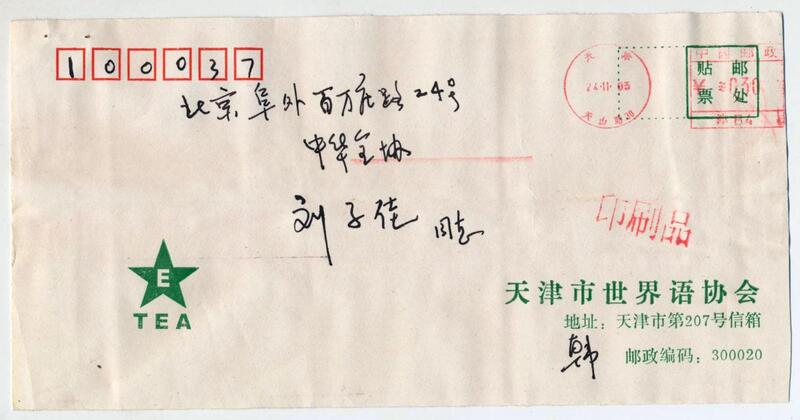 100037
北京阜外百万庄路24号
中华全协
刘子佳 同志
天津
24.11.03
天山路20
中国邮政
贴邮
票处
030
津B4
印刷品
E
TEA
天津市世界语协会
地址：天津市第207号信箱
韩
邮政编码：300020